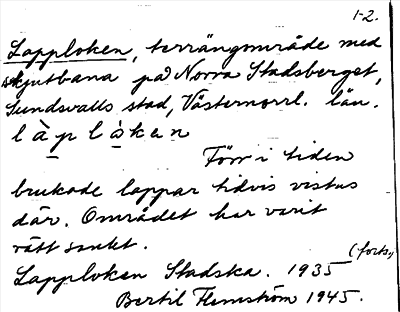 1-2.
Lapploken, terrängområde med
skjutbana på Norra Stadsberget,
Sundsvalls stad, Västernorrl. län.
l à p l å̀ k e n
Förr i tiden
brukade lappar tidvis vistas
där. Området har varit
rätt sankt.
(forts.)
Lapploken Stadska. 1935
Bertil Flemström 1945.